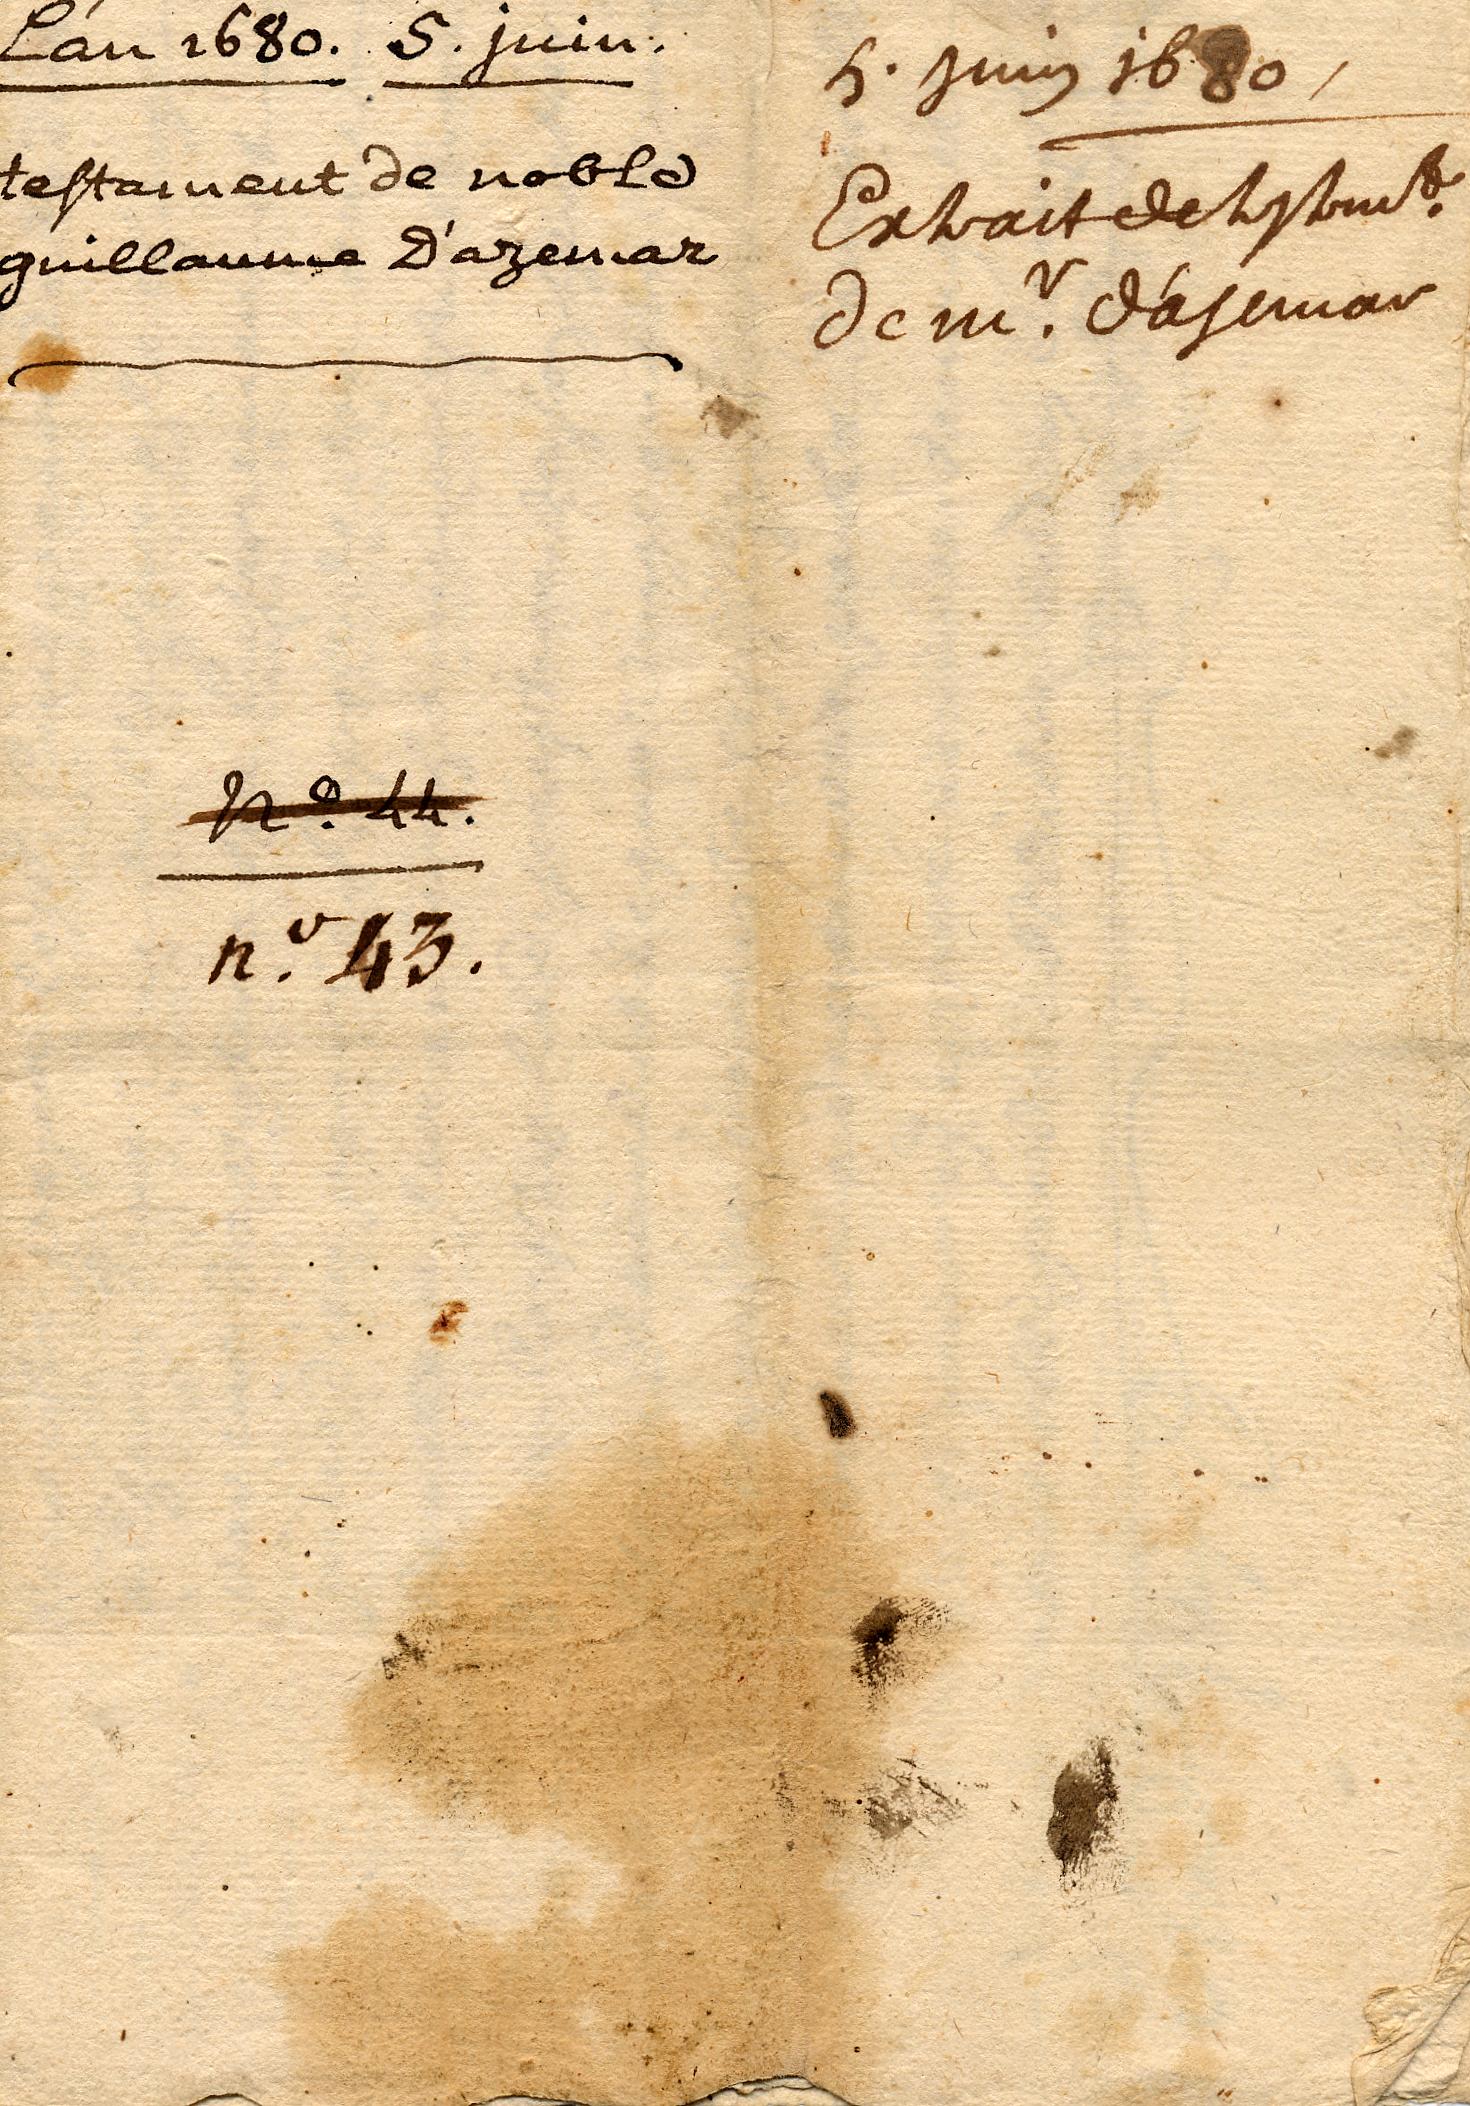 L'an 1680. 5. juin.
testament de noble
guillaume D'azemar
N.o 44.
n.o 43.
5. Juin 1680,
Extrait de testmt.
de mr. d'asemar